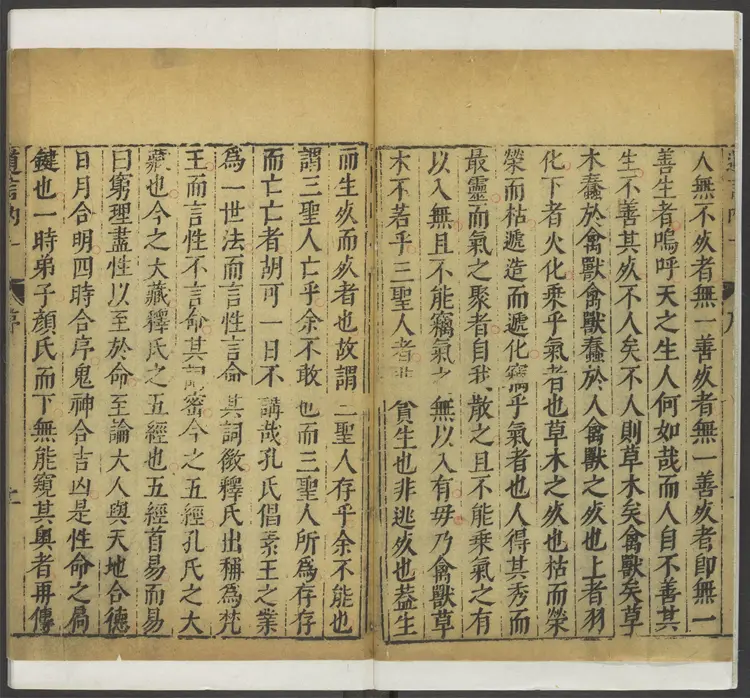 人無不死者無一善死者無一善死者即無一
善生者嗚呼天之生人何如哉而人自不善其
生不善其死不人矣不人則草木矣禽獸矣草
木蠢於禽獸禽獸蠢於人禽獸之死也上者羽
化下者火化乘乎氣者也草木之死也枯而榮
榮而枯遞造而遞化竊乎氣者也人得其秀而
最靈而氣之聚者自我散之且不能乘氣之有
以入無且不能竊氣之無以入有毋乃禽獸草
木不若乎三聖人者非貪生也非逃死也葢生
而生死而死者也故謂三聖人存乎余不能也
謂三聖人亡乎余不敢也而三聖人所爲存存
而亡亡者胡可一日不講哉孔氏倡素王之業
爲一世法而言性言命其詞微釋氏出稱爲梵
王而言性不言命其詞密今之五經孔氏之大
藏也今之大藏釋氏之五經也五經首易而易
曰窮理盡性以至於命至論大人與天地合德
日月合明四時合序鬼神合吉凶是性命之扃
鍵也一時弟子顏氏而下無能窺其奧者再傳
道言內一 序